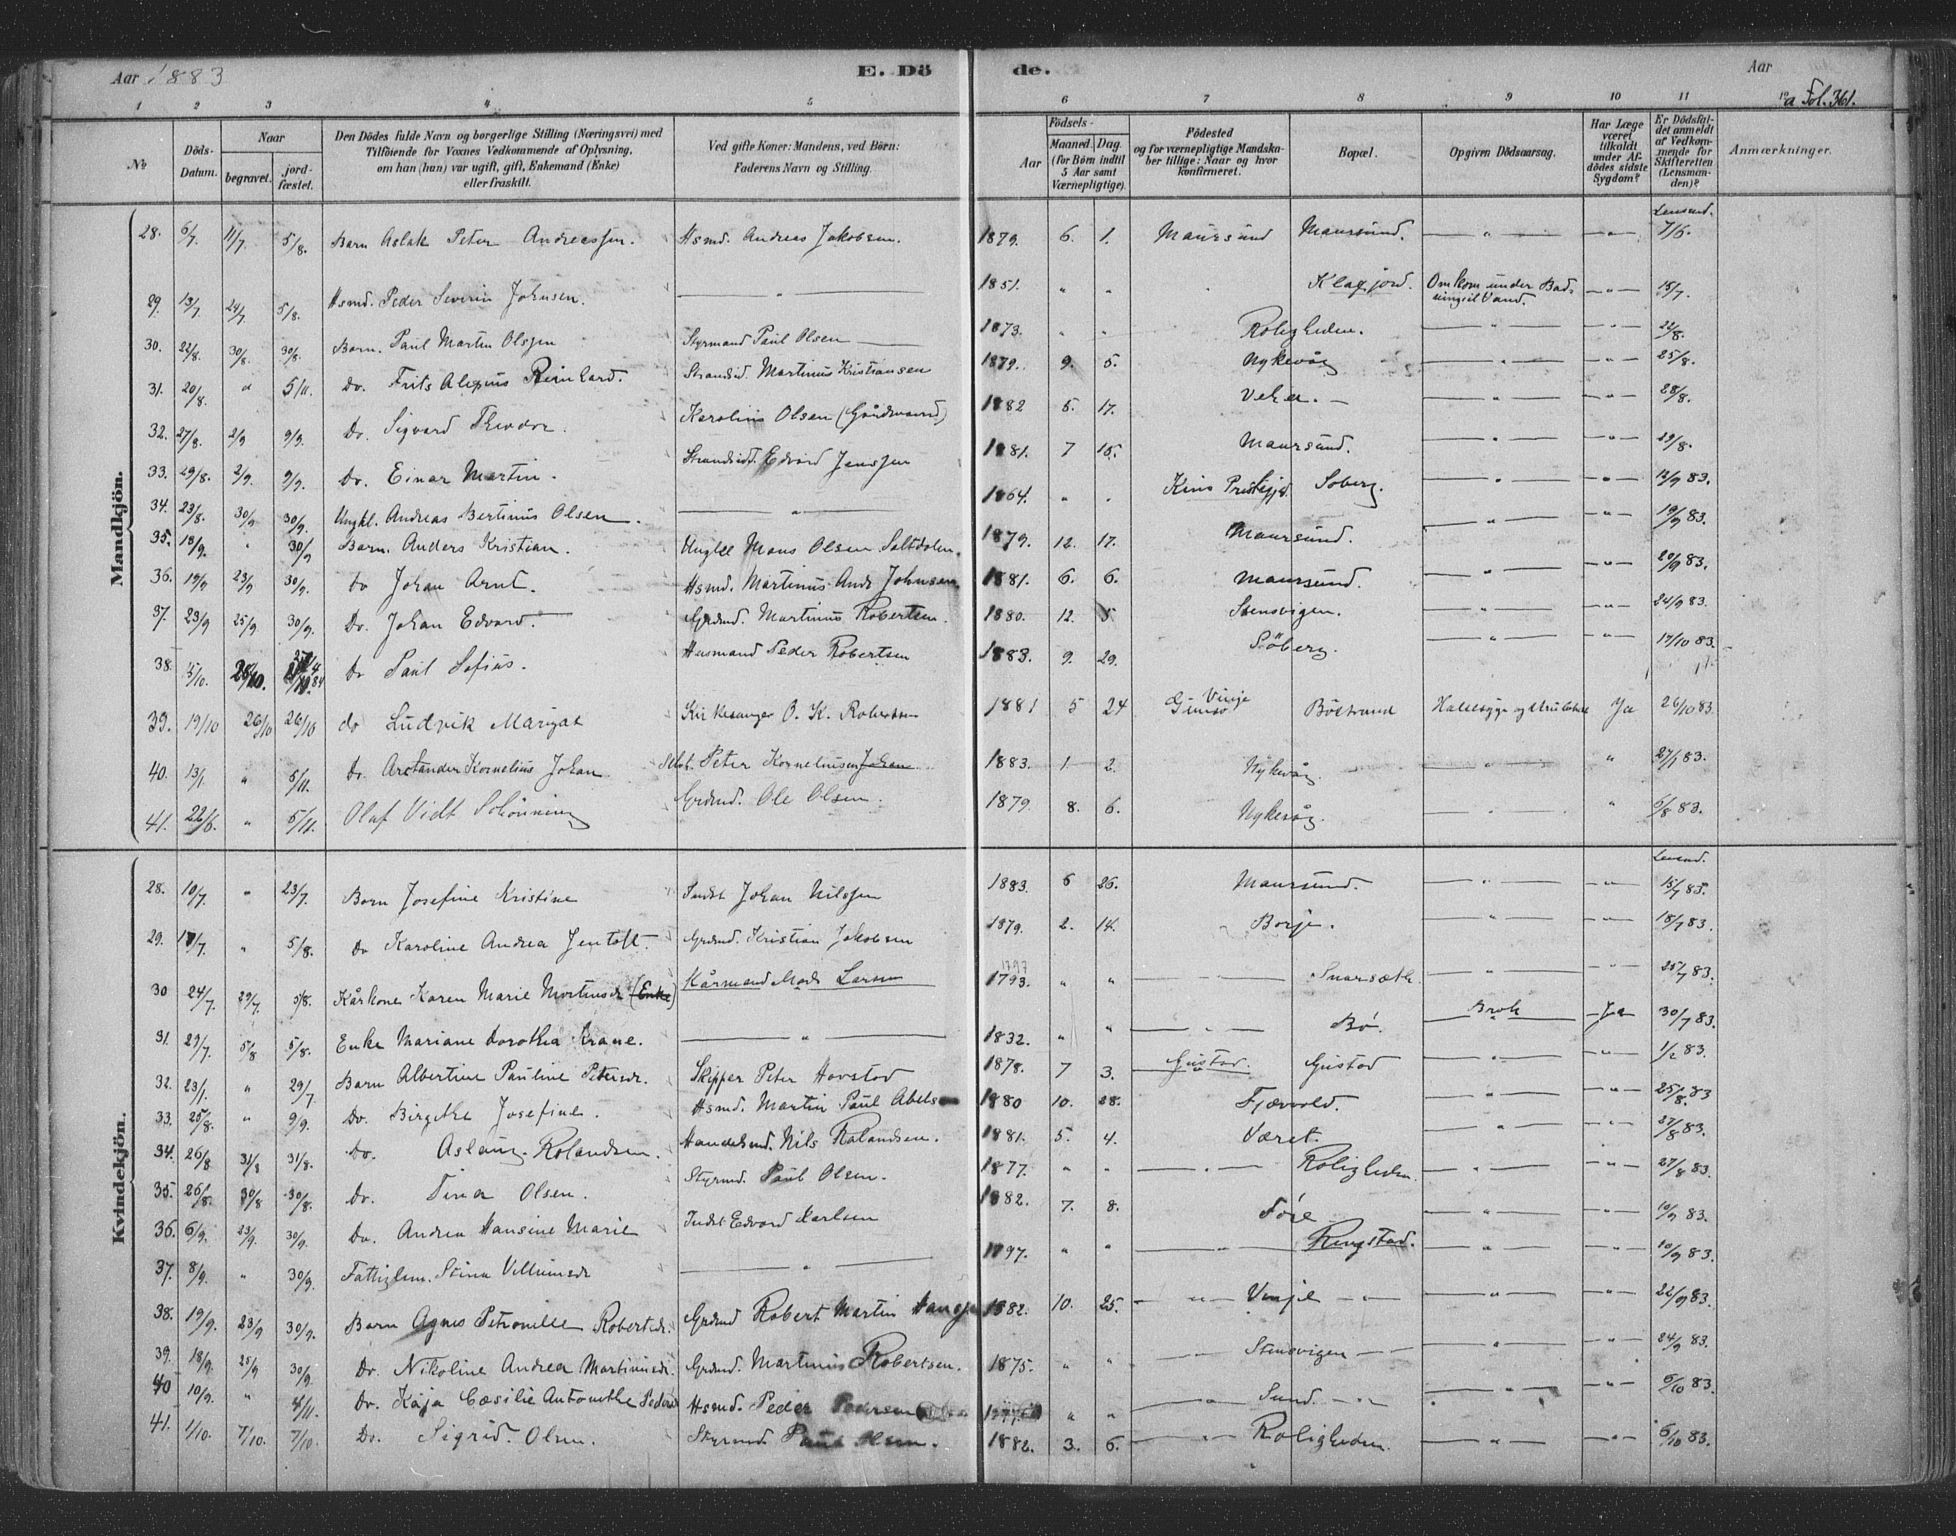 Aar 1883 E. Dö de. Aar
a Fol. 361.
1 2 3 4 5 6 7 8 9 10 11 12
No
Döds-Datum.
Naar
begravet.
jord-fæstet.
Den Dödes fulde Navn og borgerlige Stilling (Næringsvei) med
Tilföiende for Voxnes Vedkommende af Oplysning,
om han (hun) var ugift, gift, Enkemand (Enke)
eller fraskilt.
Ved gifte Koner: Mandens, ved Börn:
Faderens Navn og Stilling.
Födsels-
Aar
Maaned. Dag.
(for Börn indtil
5 Aar samt
Værnepligtige).
Födested
og for værnepligtige Mandska-
ber tillige: Naar og hvor
konfirmeret.
Bopæl.
Opgiven Dödsaarsag.
Har Læge
været
tilkaldt
under Af-
dödes sidste
Sygdom?
Er Dödsfal-
det anmeldt
af Vedkom-
mende for
Skifteretten
(Lensman-
den)?
Anmærkninger.
Mandkjön.
28. 6/7. 11/7. 5/8. Barn Aslak Peter Andreassen. Hsmd. Andreas Jakobsen. 1879. 6. 1. Maursund Maursund. — " — — " — Lensmd. 7/6.
29. 13/7 24/7 5/8. Hsmd. Peder Severin Johnsen. — " — 1851. " " Klagfjord. Omkom under Bad- — " — 15/7.
30. 22/8. 30/8. 30/8. Barn. Paul Martin Olssen Styrmand Paul Olsen — 1873. " " Roligheden. — " — — " — 22/8.
31. 20/8. " 5/11. Do. Frits Reinhard. Strandsid. Martinus Kristiansen 1879. 9. 5. Nykevåg — " — — " — 25/8.
32. 27/8. 2/9 9/9. Do. Sigvard Theodor. Karolius Olsen (Gårdmand) 1882 5. 17. — " — — " — 28/8.
33. 29/8. 2/9. 9/9. Do. Einar Martin. Strandsidd. Edvard Jenssen 1881. 7 15. Maursund. — " — — " — 29/8.
34. 23/8. 30/9 30/9. Ungkl. Andreas Bertinus Olsen. — " — 1864. " " Soberg. — " — — " — 12/9 83.
35. 18/9. " 30/9 Barn. Anders Kristian. Ungkl Mons Olsen Saltdalen. 1879. 12. 17. Maursund. — " — — " — 19/9 83.
36. 19/9 23/9 30/9. Do Johan Arnt. Hsmd. Martinus Andr Johnsen 1881. 6. 6. Maursund. — " — — " — 20/9 83.
37. 23/9 25/9 30/9. Do. Johan Edvard. Grdmd. Martinus Robertsen. 1880. 12. 5 Stensvigen. — " — — " — 24/9 83.
38 5/10. 28/10. Do Paul Sofius. Husmand Peder Robertsen 1883. 9. 29. Söberg. — " — — " — 17/10 83.
39. 19/10 26/10 26/10 do Ludvik Kirkesanger O. K. Robertsen 1881 5 24 Vinje Gimsö Böstrand Halssyge og Strubehoste Ja 26/10 83.
40. 13/1 " 5/11. Do. Arctander Kornelius Johan Peter Korneliusen 1883. 1 2. Nykevåg. — " — " 27/1 83.
41. 22/6. " 5/11. Olaf Vidt Schönning Grdmd. Ole Olsen. 1879. 8. 6. Nykevåg. — " — " 6/8 83.
Kvindekjön.
28. 10/7. " 23/7. Barn Josefine Kristine Indst Johan Nilssen 1883. 6 26. Maursund. — " — — " — Lensmd. 15/7 83.
29. 17/7 " 5/8. Do Karoline Andrea Jentoft. Grdmd. Kristian Jakobsen 1879. 2. 14. Borje. — " — — " — 18/7 83.
30 24/7. 29/7. 5/8. Kårkone Karen Marie Mortensdr (Enke) Kårmand Mads Larsen 1797 1793. " " — " — Snarsæth. — " — — " — 25/7 83.
31. 29/7. 5/8 5/8. Enke Mariane Dorothea Krane. — " — 1832. " " — " — Bö. Brok Ja 30/7 83.
32. 23/1. " 29/7 Barn Albertine Pauline Petersdr. Skipper Peter Hovstad 1878. 7 3. Gustad. Gustad — " — — " — 1/2 83.
33. 25/8. " 9/9. Do. Birgithe Josefine. Hsmd. Martin Paul Abelsen 1880 10. 28. Fjærvold. — " — — " — 25/8. 83
34. 26/8 31/8 31/8. Do. Aslaug Rolandsen. Handelsmd. Nils Rolandsen. 1881. 5. 4. Været. — " — — " — 27/8 83.
35. 26/8. 30/8 30/8. Do. Tina Olsen. Styrmd. Paul Olsen. 1877. " " — " — Roligheden. — " — — " — 27/8 83.
36. 6/9. 23/9. 30/9. Do. Andrea Hansine Marie Indst Edvard Karlsen 1882. 7. 8. Före — " — — " — 10/9 83.
37. 8/9. " 30/9. Fattiglem. Stina Villumsdr — " — 1797. " " — " — Ringstad. — " — — " — 10/9 83.
38. 19/9. 23/9 30/9. Barn Agnes Petronelle Robertsdr. Grdmd Robert Martin 1882. 10. 25. — " — Vinje — " — — " — — " — 22/9 83.
39. 18/9. 25/9 30/9. Do. Nikoline Andrea Martinusdr. Grdmd. Martinus Robertsen. 1875. " " — " — Stensvigen — — " — — " — 24/9 83.
40 10/9. " 4/11. Do. Kaja Cæsilie Antonethe Peders Hsmd. Peder Pedersen " " — " — Sund. — " — — " — 5/10 83.
41. 1/10. 7/10. 7/10. Do. Sigrid Olsen. Styrmd. Paul Olsen. 1882. 3. 6. — " — Roligheden. — " — — " — 6/10 83.